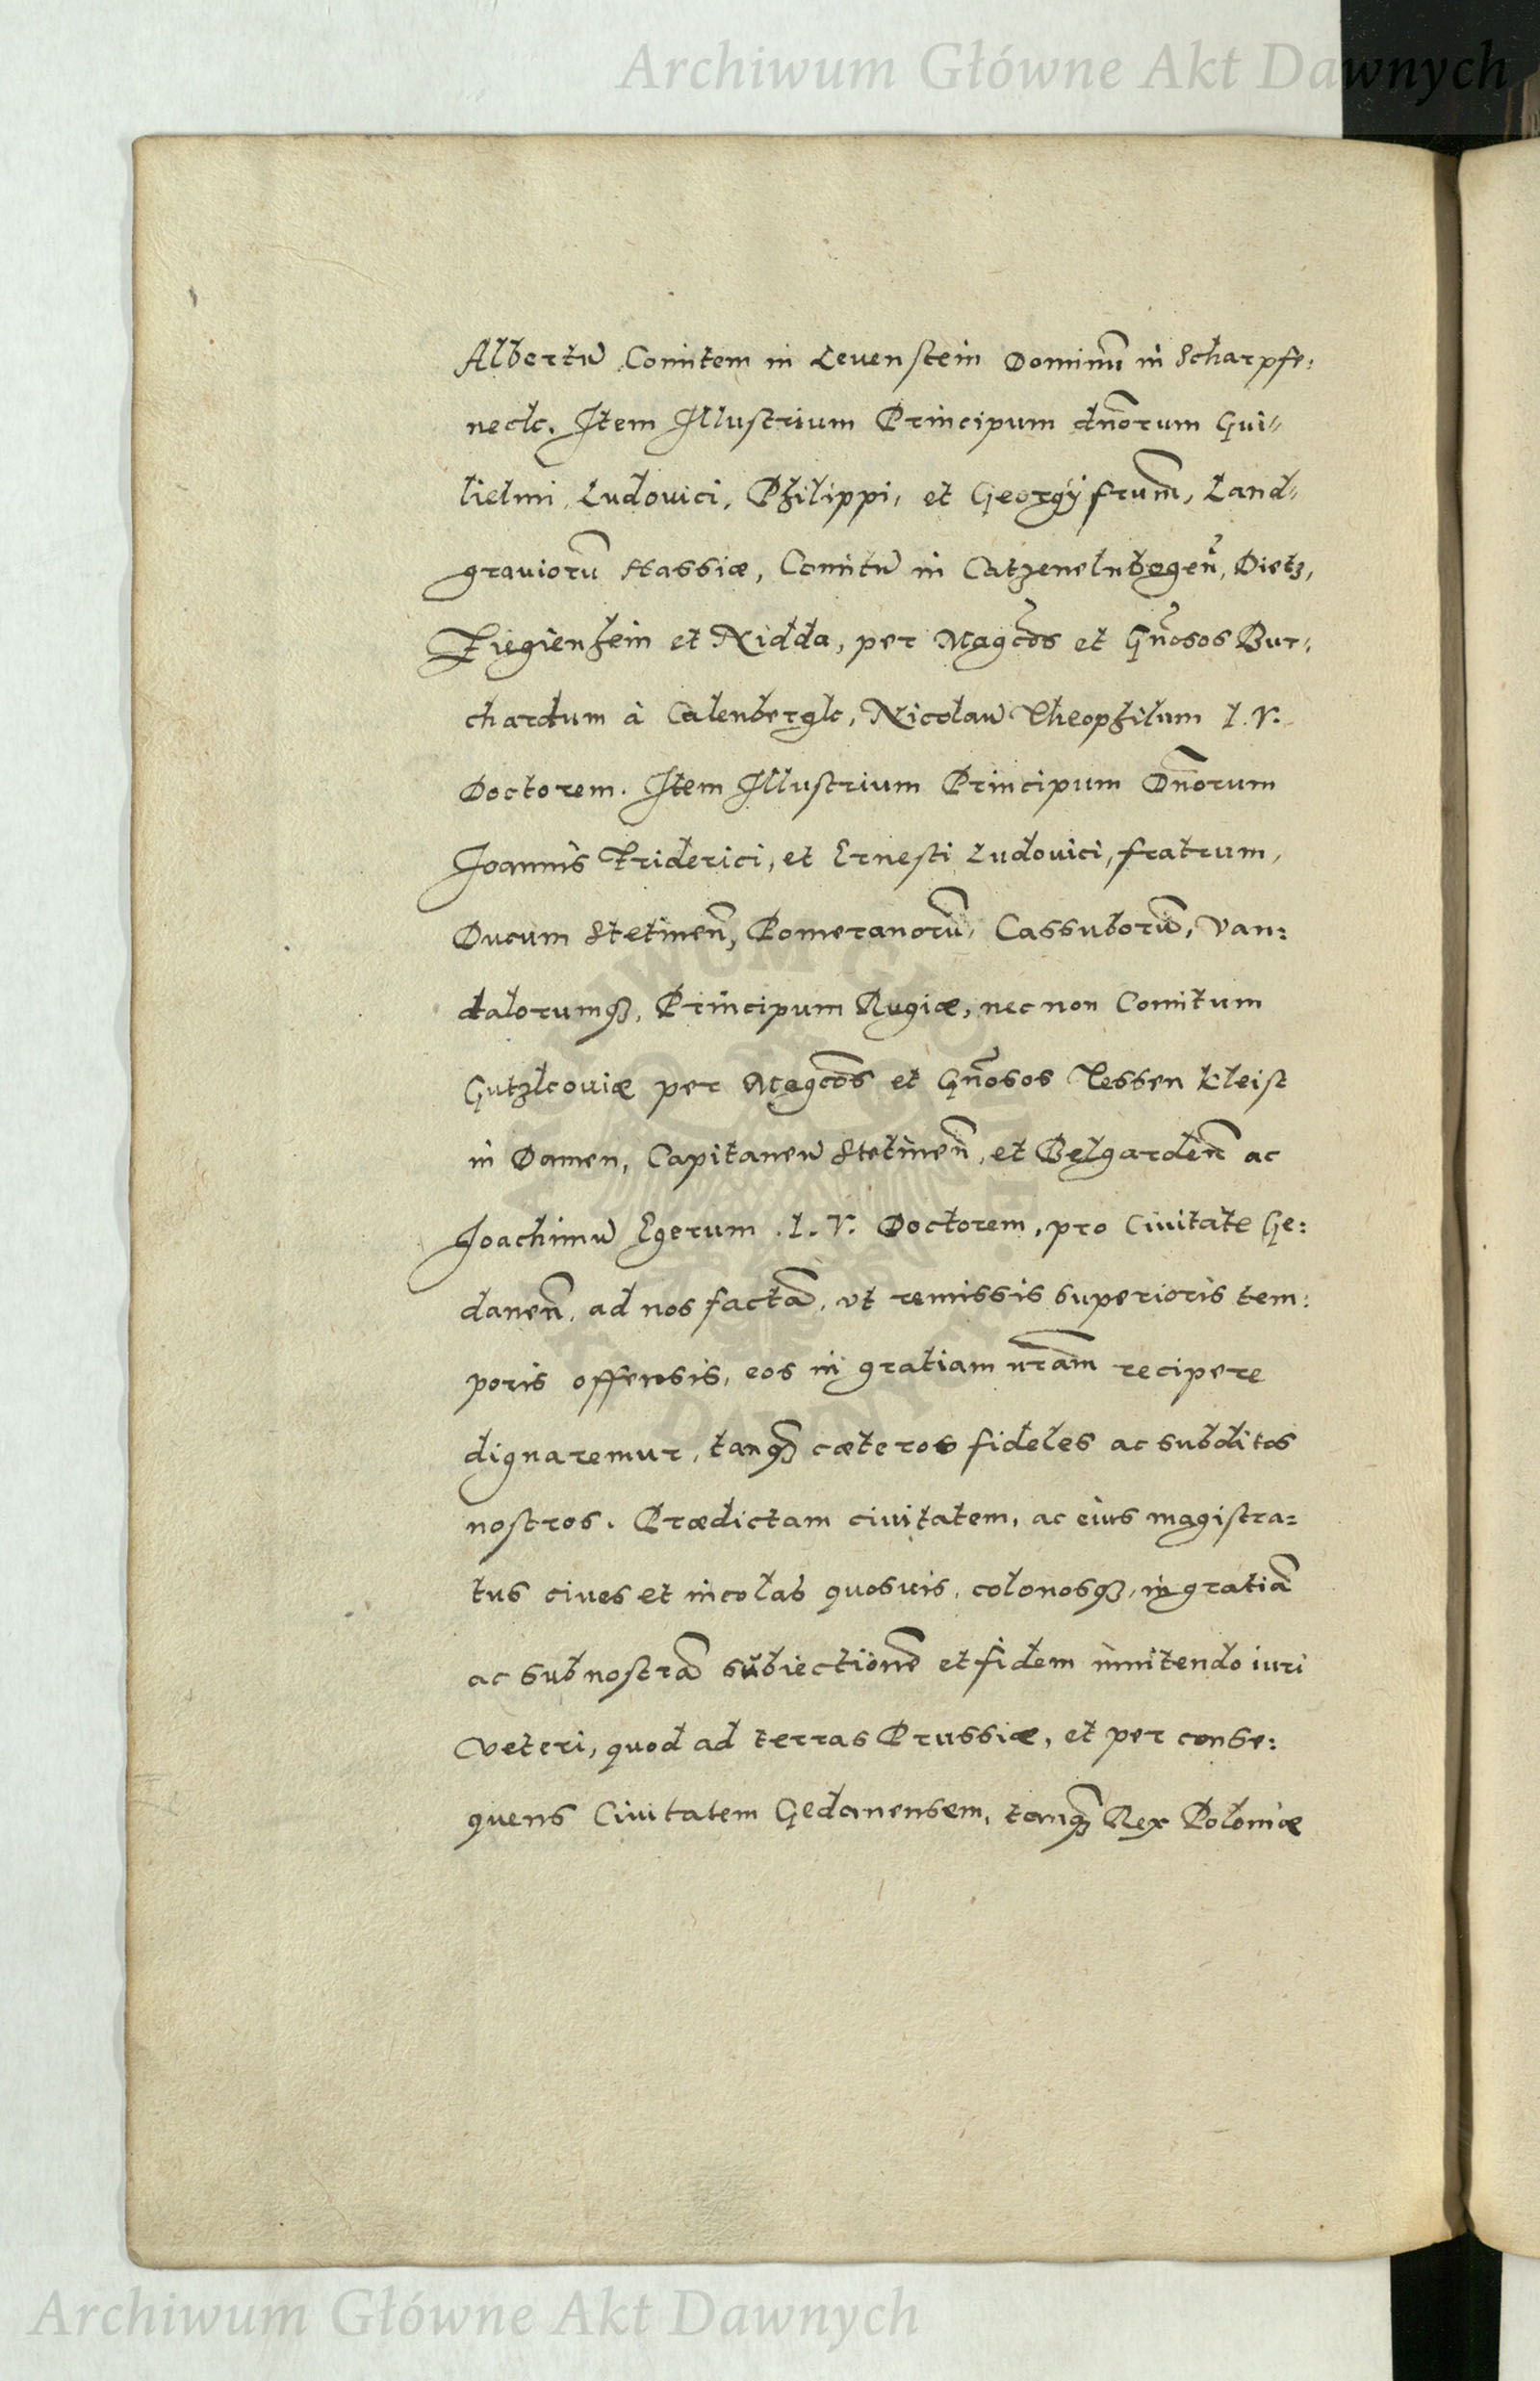 Archiwum Główne Akt Dawnych
Albertū Comitem in Levenstein Dominū in Scharpfe:
neck. Item Illustrium Principum dn̄orum Gui=
lielmi, Ludovici, Philippi, et Georgij frum̄, Land=
grauiorū Hassiæ, Comitū in Catzenelnbogen̄, Dietz,
Ziegienhein et Nidda, per Magc̄os et Gn̄osos Bur:
chardum à Calenbergk, Nicolaū Theophilum I. V.
Doctorem. Item Illustrium Principum Dn̄orum
Joannis Friderici, et Ernesti Ludouici, fratrum,
Ducum Stetinen̄, Pomeranorū, Cassuborū, Van:
dalorumqꝫ, Principum Rugiæ, nec non Comitum
Gutzkouiæ per Magc̄os et Gn̄osos Tessen Kleist
in Damen, Capitaneū Stetinen̄, et Belgarden̄ ac
Joachimū Egerum I. V. Doctorem, pro Ciuitate Ge:
danen̄, ad nos factā, vt remissis superioris tem:
poris offensis, eos in gratiam nr̄am recipere
dignaremur, tanqꝫ cæteros fideles ac subditos
nostros. Prædictam ciuitatem, ac eius magistra=
tus ciues et incolas quosuis, colonosqꝫ, in gratiā
ac sub nostrā subiectionē et fidem innitendo iuri
veteri, quod ad terras Prussiæ, et per conse:
quens Ciuitatem Gedanensem, tanqꝫ Rex Poloniæ
Archiwum Główne Akt Dawnych